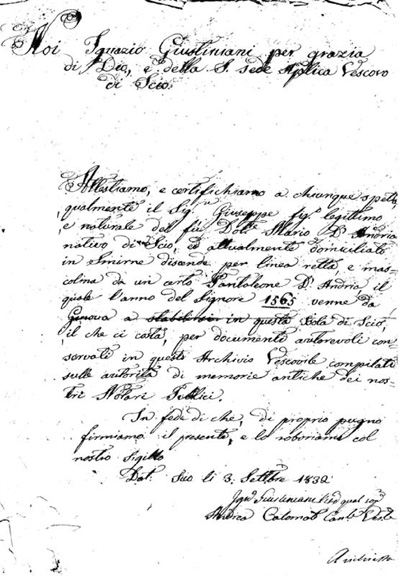 Noi Ignazio Giustiniani per grazia
di Dio, e della S. sede Aplica Vescovo
di Scio.
Attestiamo, e certifichiamo a chiunque spetti,
qualmente il Sig. Giuseppe figº legittimo
e naturale del fù Dott. Mario D'Andria
nativo di Scio, ed attualmente domiciliato
in Smirne discende per linea retta, e mas-
colina da un certo Pantaleone D'Andria il
quale l'anno del Signore 1565 venne da
Genova a stabilirsi in questa Isola di Scio,
il che ci costa, per documenti autorevoli con-
servati in questo Archivio Vescovile compilati
sulle autorità di memorie antiche dei nos-
tri Notari Publici.
In fede di che, di proprio pugno
firmiamo il presente, e lo roboriamo col
nostro sigillo
Dat. Scio li 3. Settbre 1830
Ignº Giustiniani
Andrea